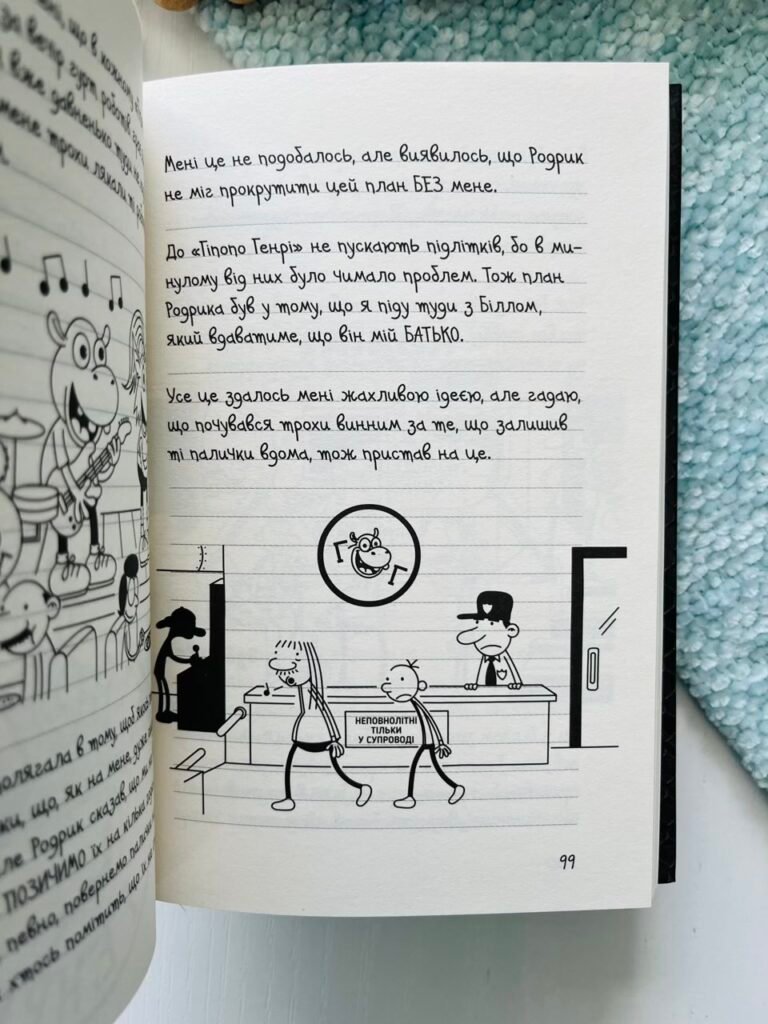 що в кожному
за вечір гурт роботів
вже давненько туди не
мене трохи лякали ті
полягала в тому, щоб
що, як на мене, дуже
ле Родрик сказав, що ми
ПОЗИЧИМО їх на кілька
певно, повернемо палички
хтось помітить, що їх
Мені це не подобалось, але виявилось, що Родрик
не міг прокрутити цей план БЕЗ мене.
До «Гіпопо Генрі» не пускають підлітків, бо в ми-
нулому від них було чимало проблем. Тож план
Родрика був у тому, що я піду туди з Біллом,
який вдаватиме, що він мій БАТЬКО.
Усе це здалось мені жахливою ідеєю, але гадаю,
що почувався трохи винним за те, що залишив
ті палички вдома, тож пристав на це.
Г Г
НЕПОВНОЛІТНІ
ТІЛЬКИ
У СУПРОВОДІ
99